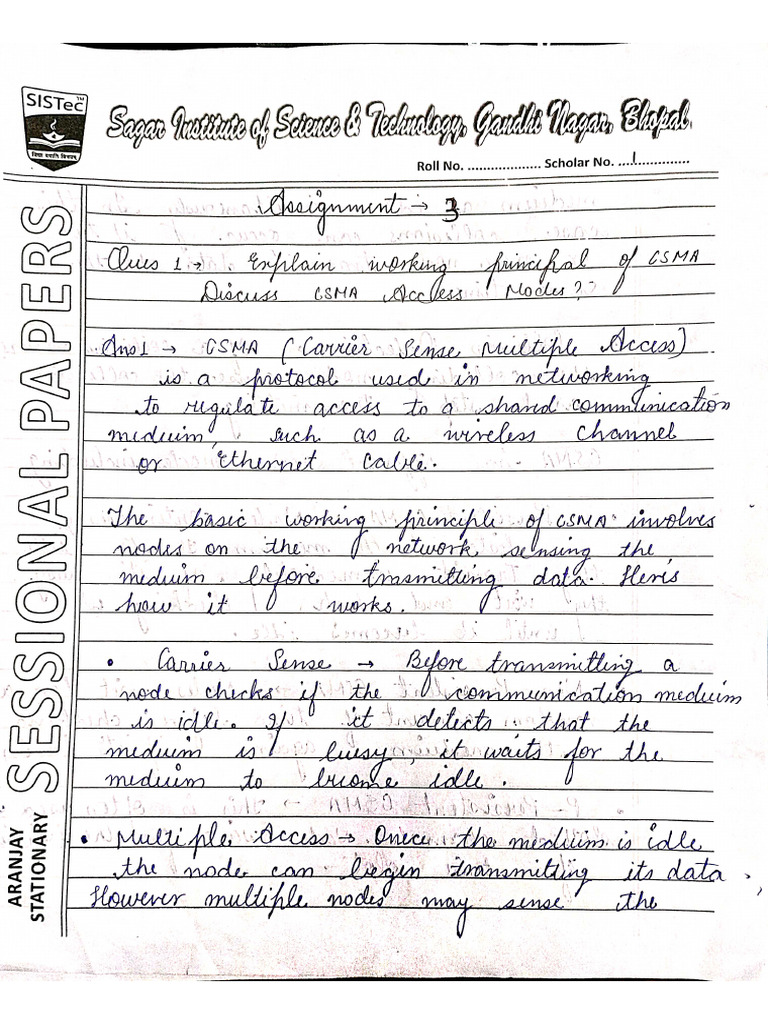 SISTec™
विद्या परमं बलम्
Sagar Institute of Science & Technology, Gandhi Nagar, Bhopal.
Roll No. .................... Scholar No. ....1..............
Assignment → 3
Ques 1 → Explain working principal of CSMA
Discuss CSMA Access Modes?
Ans 1 → CSMA (Carrier Sense Multiple Access)
is a protocol used in networking
to regulate access to a shared communication
meduim, such as a wireless channel
or Ethernet cable.
The basic working principle of CSMA involves
nodes on the network, sensing the
meduim before trasmitting data. Her's
how it works.
• Carrier Sense → Before transmitting a
node checks if the communication meduim
is idle. If it detects that the
meduim is busy, it waits for the
meduim to become idle.
• Multiple Access → Onece the meduim is idle
the node can begin transmitting its data.
However multiple nodes may sense the
SESSIONAL PAPERS
ARANJAY
STATIONARY